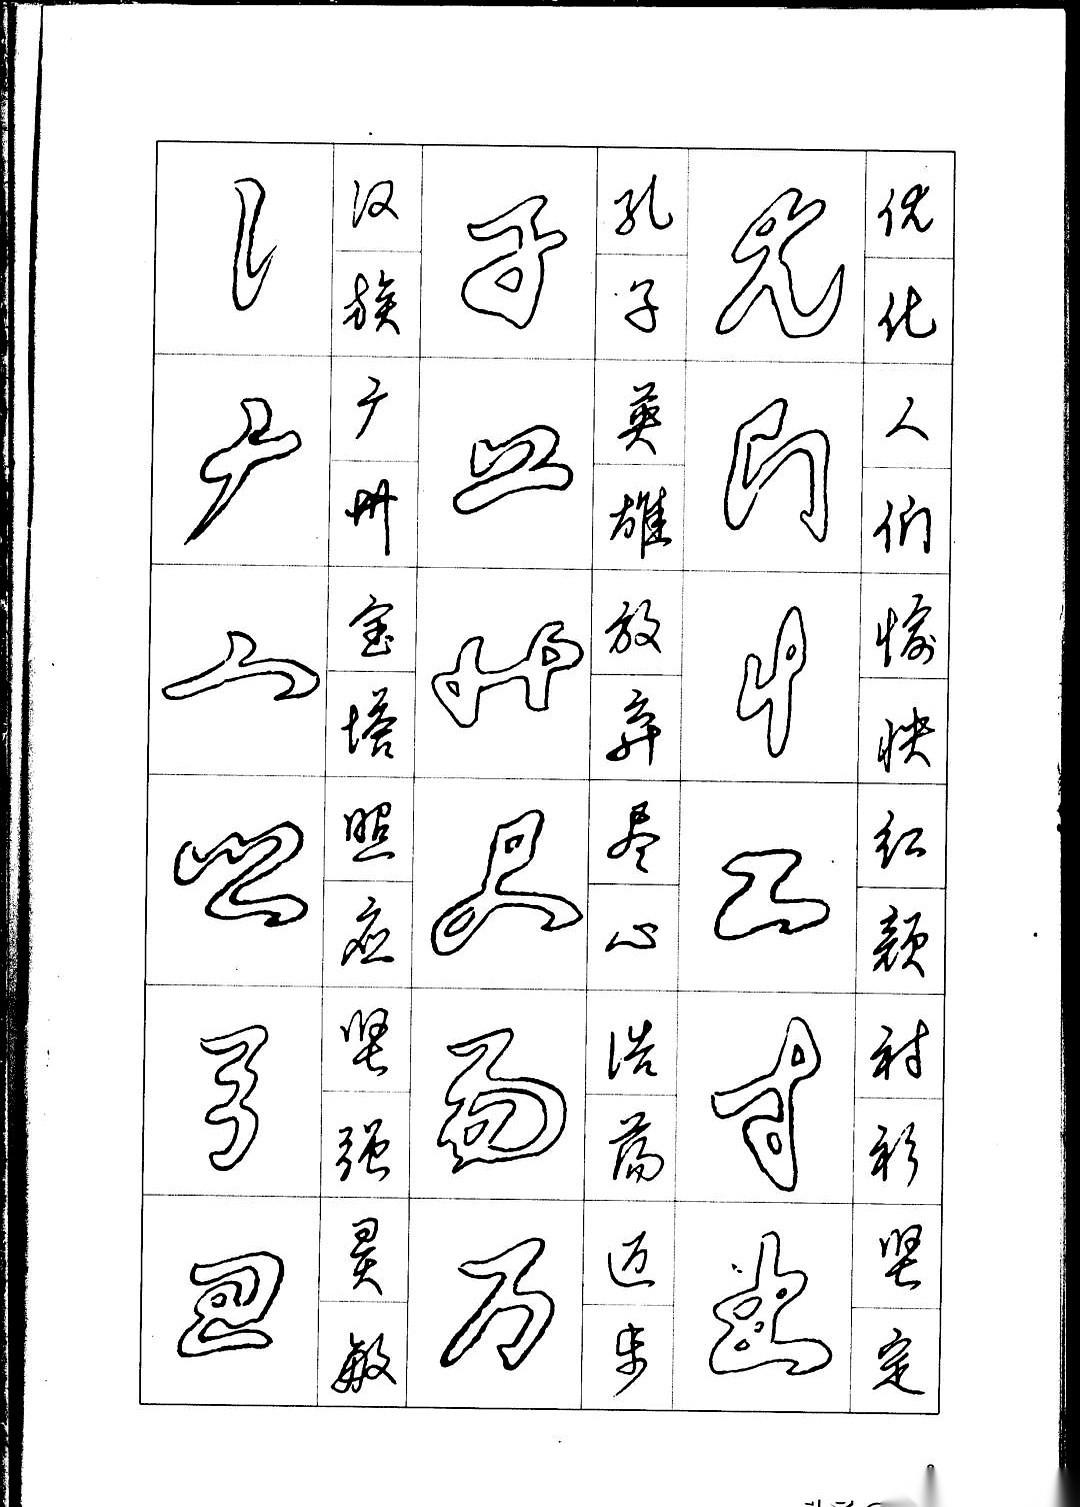 汉族
孔子
优化
广州
英雄
人们
宝塔
放弃
愉快
照应
尽心
红颜
坚强
浩荡
衬衫
灵敏
迈步
坚定